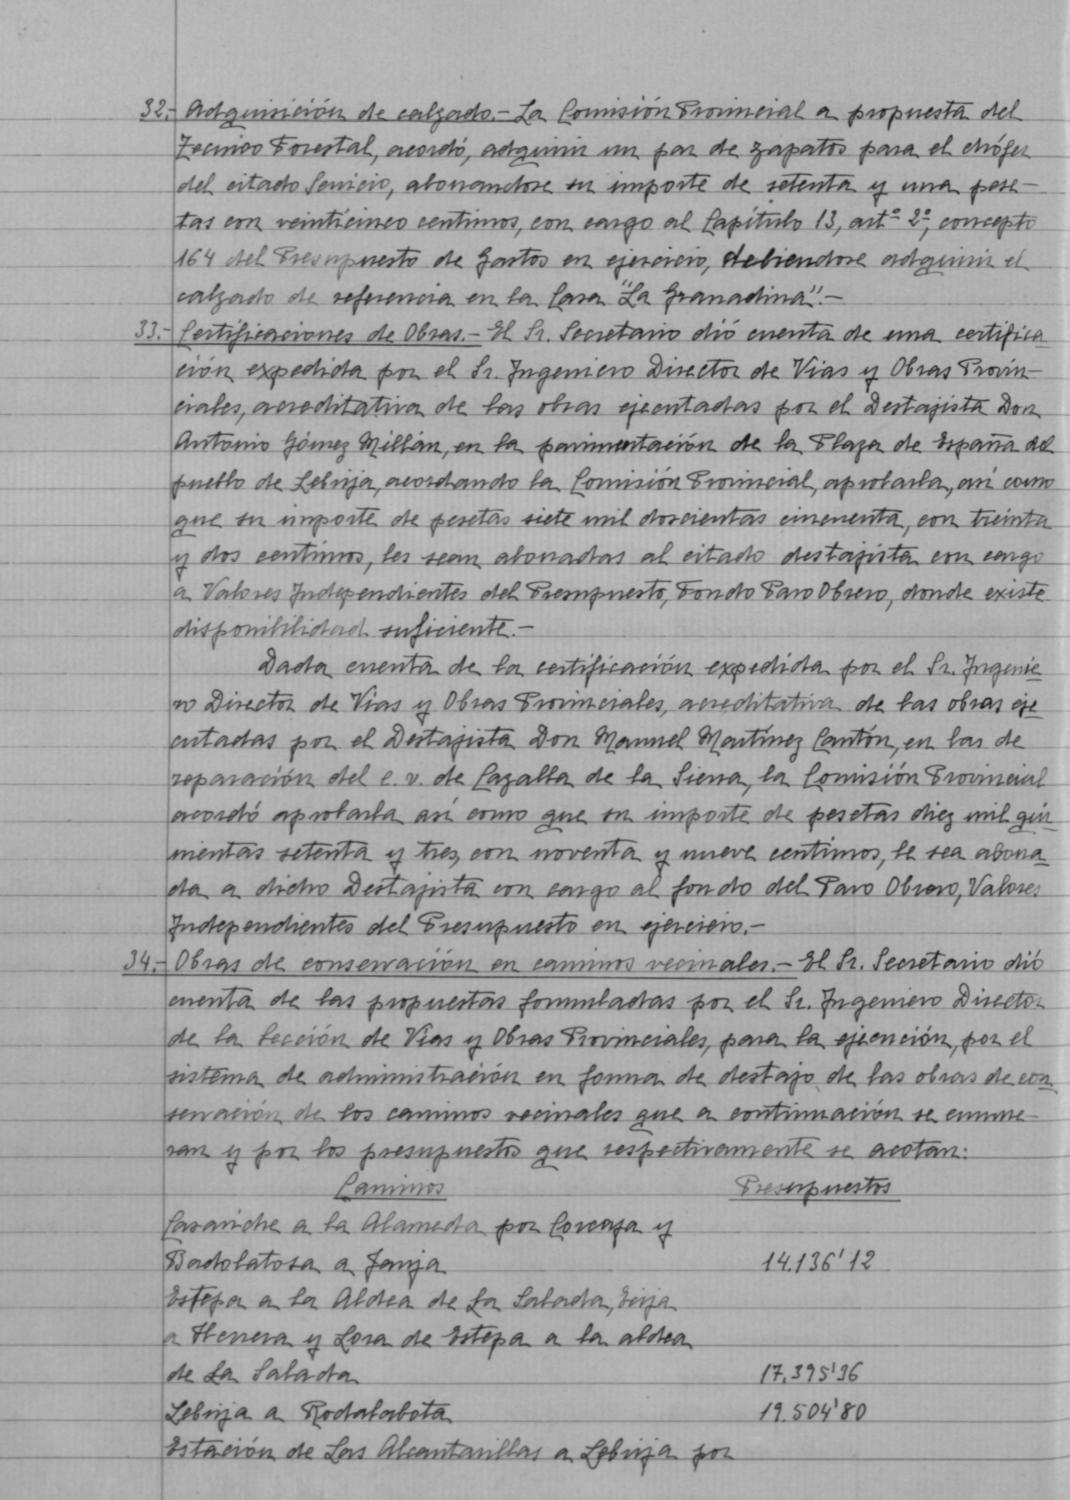 32.- Adquisición de calzado.- La Comisión Provincial a propuesta del
Tecnico Forestal, acordó, adquirir un par de zapatos para el chófer
del citado Servicio, abonandose su importe de setenta y una pese-
tas con veinticinco centimos, con cargo al Capítulo 13, artº 2º, concepto
164 del Presupuesto de Gastos en ejercicio, debiendose adquirir el
calzado de referencia en la Casa "La Granadina".-
33.- Certificaciones de Obras.- El Sr. Secretario dió cuenta de una certifica
ción expedida por el Sr. Ingeniero Director de Vias y Obras Provin-
ciales, acreditativa de las obras ejecutadas por el Destajista Don
Antonio Gómez Millán, en la pavimentación de la Plaza de España del
pueblo de Lebrija, acordando la Comisión Provincial, aprobarla, así como
que su importe de pesetas siete mil doscientas cincuenta, con treinta
y dos centimos, les sean abonadas al citado destajista con cargo
a Valores Independientes del Presupuesto, Fondo Paro Obrero, donde existe
disponibilidad suficiente.-
Dada cuenta de la certificación expedida por el Sr. Ingenie
ro Director de Vias y Obras Provinciales, acreditativa de las obras eje
cutadas por el Destajista Don Manuel Martínez Cantón, en las de
reparación del c. v. de Cazalla de la Sierra, la Comisión Provincial
acordó aprobarla así como que su importe de pesetas diez mil qui
nientas setenta y tres, con noventa y nueve centimos, le sea abona
da a dicho Destajista con cargo al fondo del Paro Obrero, Valores
Independientes del Presupuesto en ejercicio.-
34.- Obras de conservación en caminos vecinales.- El Sr. Secretario dió
cuenta de las propuestas formuladas por el Sr. Ingeniero Director
de la Sección de Vias y Obras Provinciales, para la ejecución, por el
sistema de administración en forma de destajo, de las obras de con
servación de los caminos vecinales que a continuación se enume-
ran y por los presupuestos que respectivamente se acotan:
Caminos Presupuestos
Casariche a la Alameda por Corcoya y
Badolatosa a Jauja 14.136'12
Estepa a la Aldea de La Salada, Ecija
a Herrera y Lora de Estepa a la aldea
de La Salada 17.395'36
Lebrija a Rodalabota 19.504'80
Estación de Las Alcantarillas a Lebrija por